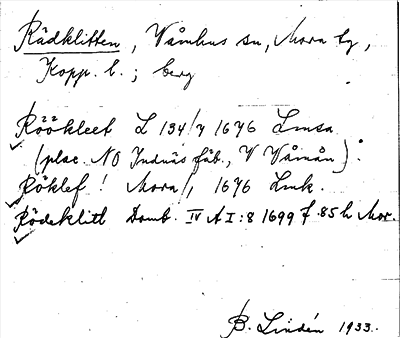 Rädklitten, Våmhus sn, Mora tg,
Kopp. l.; berg
Röökleet L 134/7 1676 Lmsa
(plac. NO Indnäs fäb., V Våmån).
Röklef! Mora/1 1676 Lmk.
Rödeklitt Domb. IV A I:8 1699 f. 85 h Mor.
B. Lindén 1933.